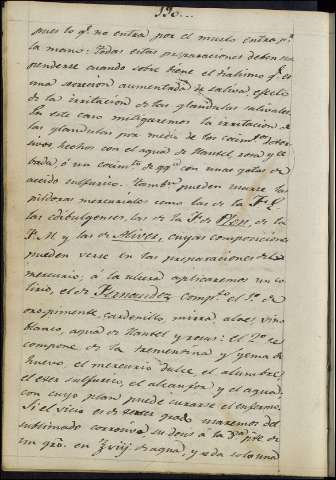 130...
pues lo q.e no entra por el muslo entra p.r
la mano: Todas estas preparaciones deben sus
penderse cuando sobre biene el tialismo q.e es
una secrecion aumentada de saliva, efecto
de la irritacion de las glandulas salivales
En este caso mitigaremos la irritacion de
las glandulas por medio de los cocim.tos
tivos, hechos con el agua de llantel, rosa y ce
bada ó un cocim.to de qq.na con unas gotas de
acido sulfurico. Tambien pueden usarse las
pildoras mercuriales como las de la F.
las edibulgenses, las de la F. de Plen, de la
F. M. y las de Aliver, cuyas composiciones
pueden verse en las preparaciones de
mercurio; á la ulcera aplicaremos un co
lirio, el de Fernandez comp.to el 1.o de
oropimente, cardenillo, mirra, aloes, vino
blanco, agua de llantel y rosas: el 2.o se
compone de la trementina y yema de
huevo, el mercurio dulce, el alumbre,
el eter sulfurico, el alcanfor y el agua,
con cuyo plan puede curarse el enfermo.
Si el vicio es de tercer grado usaremos del
sublimado corrosivo su dosis á la p.te de
un gr.o en ℥viij de agua, y se da sola una